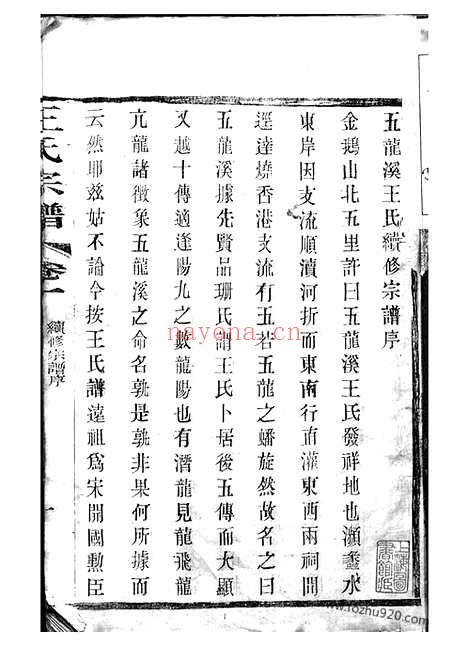 五龍溪王氏續修宗譜序
金鵝山北五里許曰五龍溪王氏發祥地也瀕蠡水
東岸因支流順瀆河折而東南行直灌東西兩祠間
逕達燒香港支流有五若五龍之蟠旋然故名之曰
五龍溪據先賢品珊氏謂王氏卜居後五傳而大顯
又越十傳適逢陽九之數龍陽也有潛龍見龍飛龍
亢龍諸徵象五龍溪之命名孰是孰非果何所據而
云然耶茲姑不論今按王氏譜遠祖爲宋開國勲臣
王氏宗譜 卷一
續修宗譜序
一
nayona.cn
www.fozhu920.com